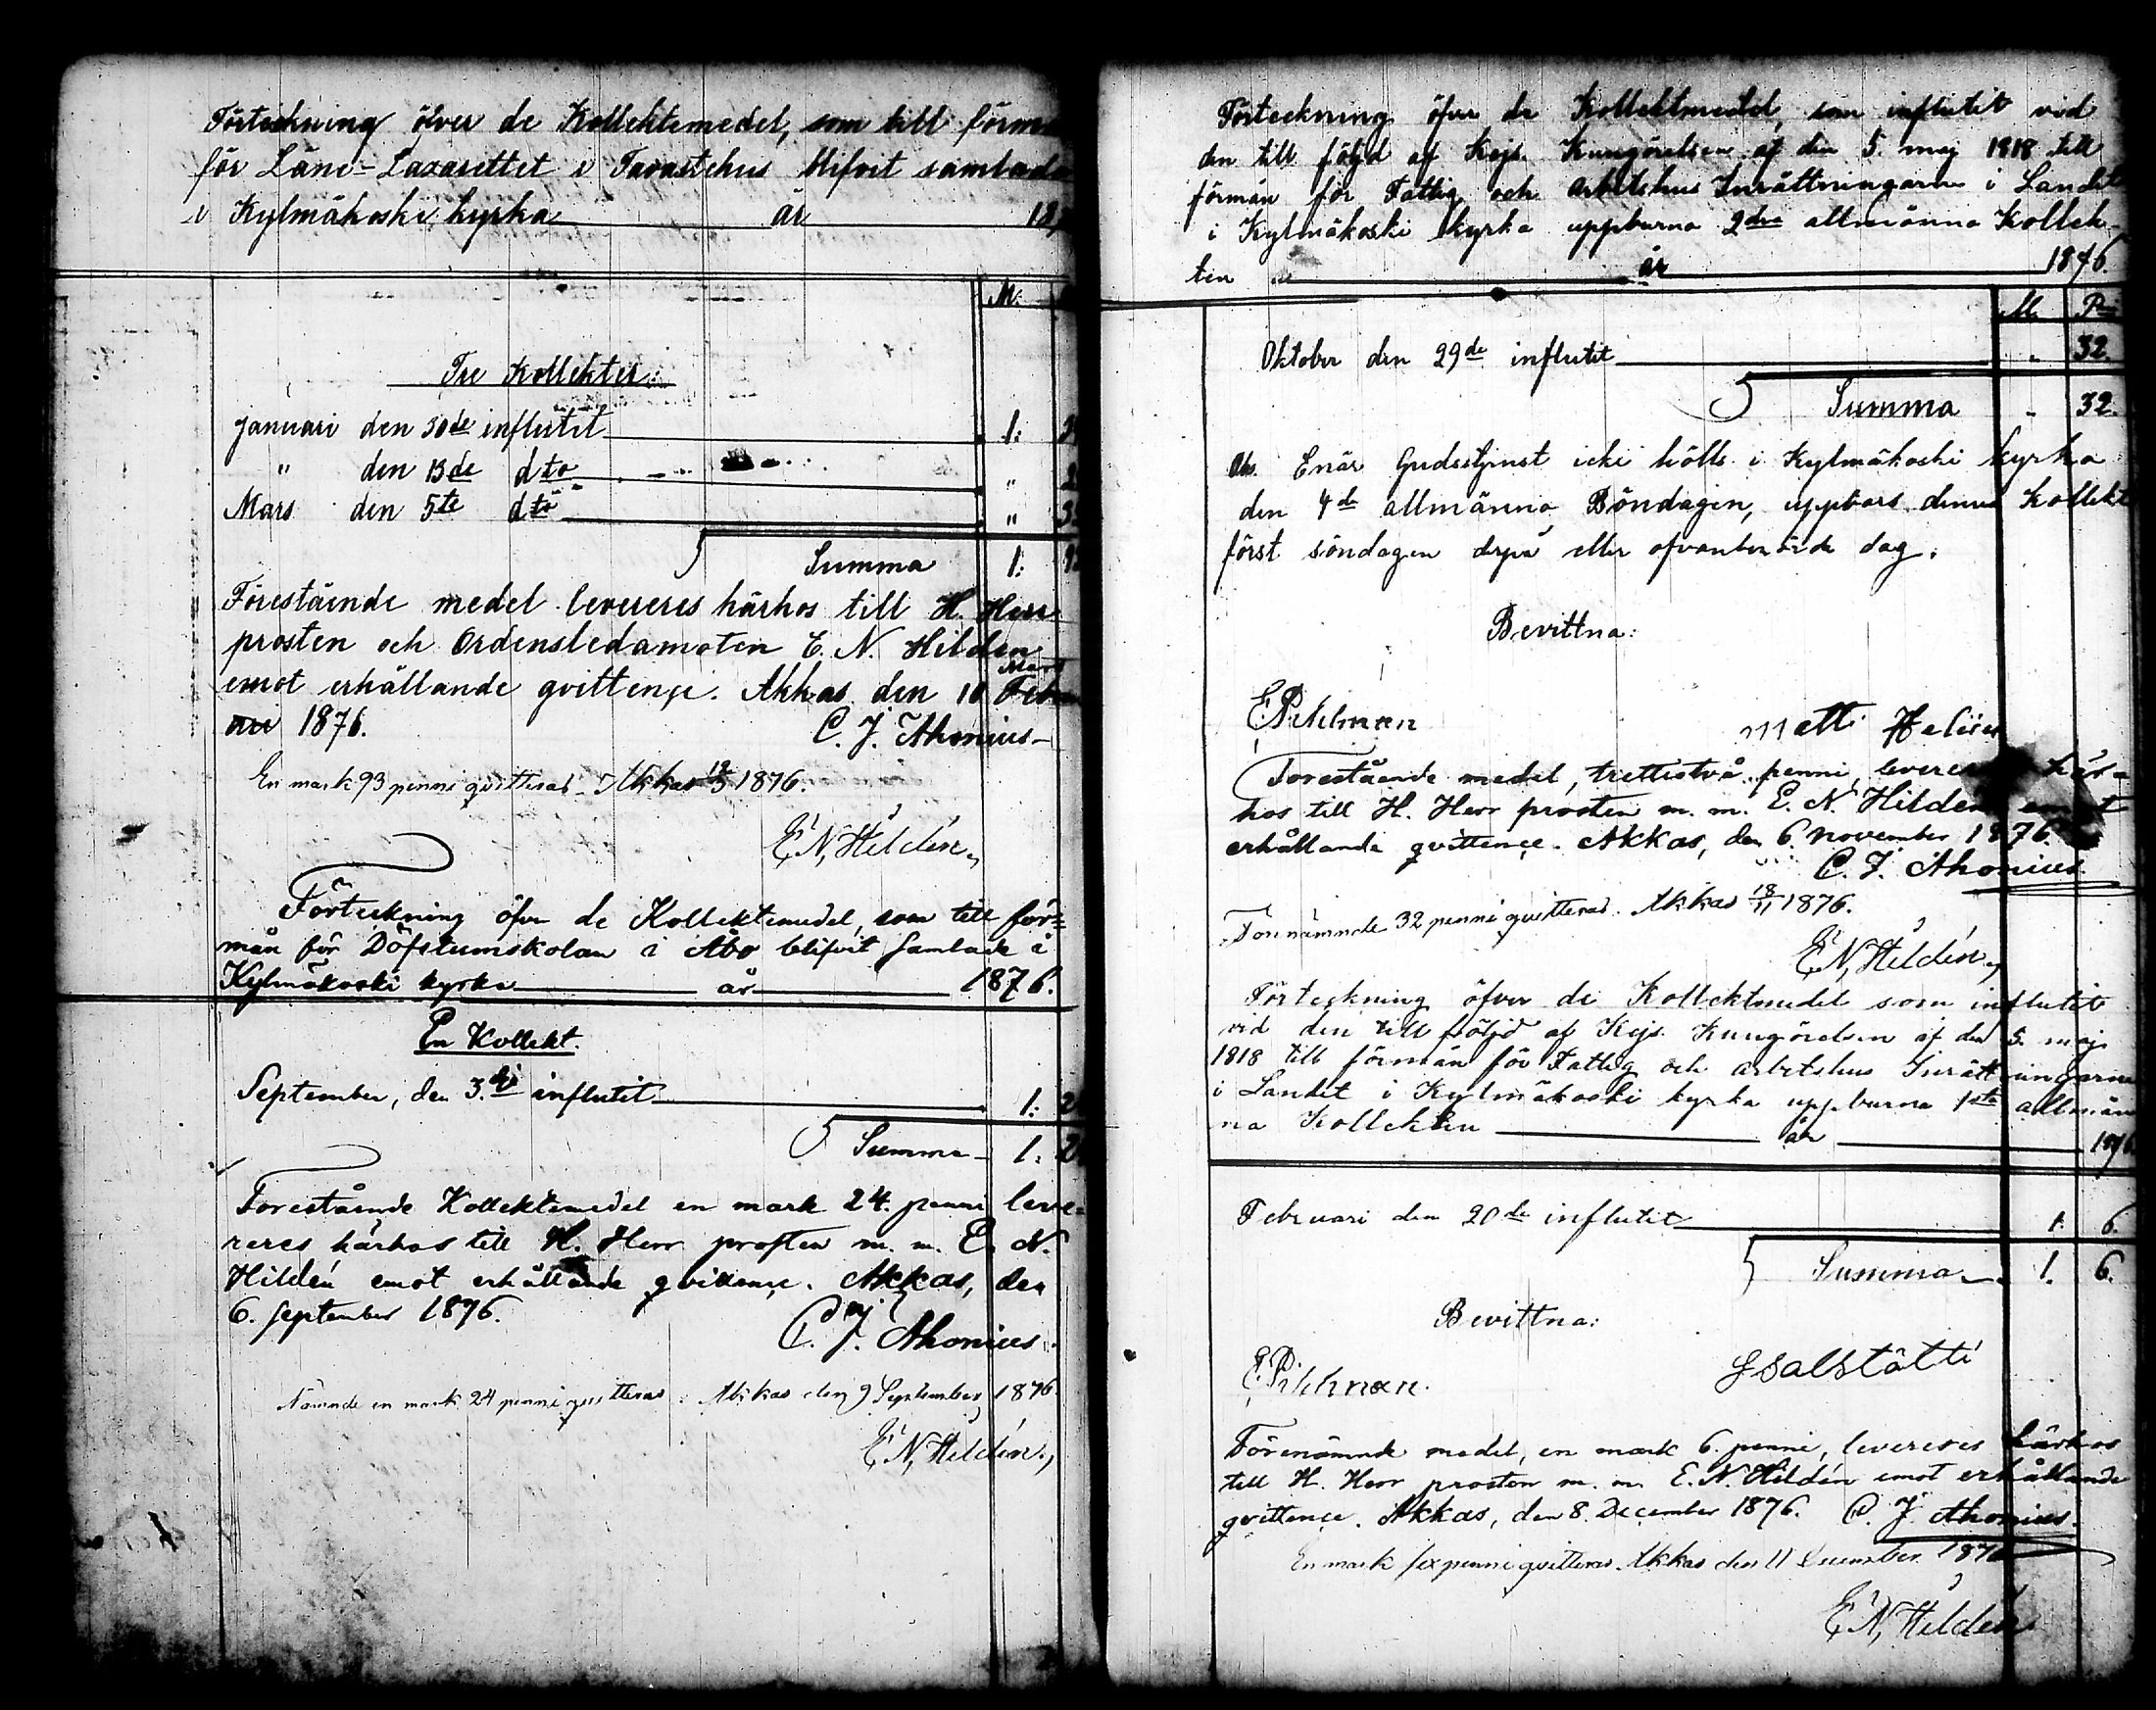 Förteckning öfver de Kollektemedel, som till förm
för Läns-Lazarettet i Tavastehus blifvit samlade
i Kylmäkoski kyrka år 18
M.
Tre Kollekter.
Januari den 30de influtit 1:
" den 13de dto "
Mars den 5te dto " 3
Summa 1: 9
Förestående medel levereres härhos till H. Herr
prosten och Ordensledamoten E. N. Hildén
emot erhållande qvittençe. Akkas den 10 Mars Feb
ari 1876.
C. J. Ahonius
En mark 93 penni qvitteras. Akkas 12/3 1876.
E. N. Hildén
Förteckning öfver de Kollektemedel, som till för=
mån för Döfstumskolan i Åbo blifvit samlade i
Kylmäkoski kyrka år 1876.
En Kollekt.
September, den 3.dje influtit 1: 2
Summa 1. 2
Förestående Kollektemedel en mark 24. penni leve=
reres härhos till H. Herr prosten m. m. E. N.
Hildén emot erhållande qvittençe. Akkas, den
6. September 1876.
C. J. Ahonius.
Nämnde en mark 24 penni qvitteras: Akkas den 9 September 1876
E. N. Hildén
Förteckning öfver de Kollektmedel, som influtit vid
den till följd af Kejs. Kungörelsen af den 5. maj 1818 till
förmån för Fattig och Arbetshus Inrättningarne i Landet
i Kylmäkoski kyrka uppburna 2dra allmänna Kollek-
ten år 1876.
M. Pi
Oktober den 29de influtit " 32
Summa - 32.
Obs. Enär Gudstjenst icke hölls i Kylmäkoski kyrka
den 4de allmänna Böndagen, uppbars denna Kollekt
först söndagen derpå eller ofvanberörde dag.
Bevittna:
E. Pihlman Matti Helin
Förestående medel, trettiotvå penni, leverer här=
hos till H. Herr prosten m. m. E. N. Hildén emot
erhållande qvittençe. Akkas, den 6. November 1876.
C. J. Ahonius.
Förnämnde 32 penni qvitteras. Akkas 18/11 1876.
E. N. Hildén
Förteckning öfver de Kollektmedel som influtit
vid den till följd af Kejs. Kungörelsen af den 5. maj
1818 till förmån för Fattig och arbetshus Inrättningarne
i Landet i Kylmäkoski kyrka uppburna 1sta allmän
na Kollekten år 1876
Februari den 20de influtit 1. 6.
Summa 1. 6.
Bevittna:
E. Pihlman. G Salstätti
Förenämnde medel, en mark 6. penni, levereres härhos
till H. Herr prosten m. m. E. N. Hildén emot erhållande
qvittençe. Akkas, den 8. December 1876. C. J. Ahonius.
En mark sex penni qvitteras. Akkas den 11 December 1876
E. N. Hildén